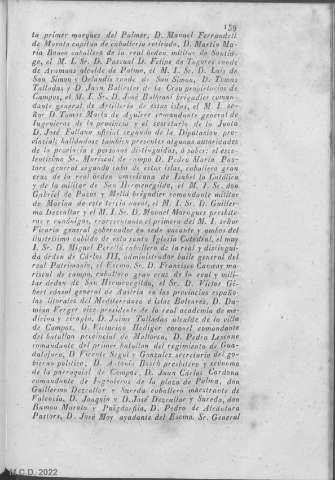 159
ta primer marques del Palmer, D. Manuel Ferrandell
de Morata capitan de caballería retirado, D. Martin Ma-
ria Boneo caballero de la real órden militar de Santia-
go, el M. I. Sr. D. Pascual D. Felipe de Togores conde
de Ayamans alcalde de Palma, el M. I. Sr. D. Luis de
San Simon y Orlandis conde de San Simon, D. Tomas
Talladas y D. Juan Ballester de la Creu propietarios de
Campos, el M. I. Sr. D. José Baltroni brigadier coman-
dante general de Artillería de estas islas, el M. I. se-
ñor D. Tomas María de Aguirre comandante general de
Ingenieros de la provincia y el secretario de la Junta
D. José Fullana oficial segundo de la Diputacion pro-
vincial; hallándose tambien presentes algunas autoridades
de la provincia y personas distinguidas, á saber: el esce-
lentísimo Sr. Mariscal de campo D. Pedro María Pas-
tors general segundo cabo de estas islas, caballero gran
cruz de la real órden americana de Isabel la Católica
y de la militar de San Hermenegildo, el M. I. Sr. don
Gabriel de Pazos y Mollá brigadier comandante militar
de Marina de este tercio naval, el M. I. Sr. D. Guiller-
mo Dezcallar y el M. I. Sr. D. Manuel Marugues presbíte-
ros y canónigos, representando el primero del M. I. señor
Vicario general gobernador en sede vacante y ambos del
ilustrísimo cabildo de esta santa Iglesia Catedral, el muy
I. Sr. D. Miguel Perelló caballero de la real y distingui-
da órden de Cárlos III, administrador baile general del
real Patrimonio, el Escmo. Sr. D. Francisco Cuevas ma-
riscal de campo, caballero gran cruz de la real y mili-
tar órden de San Hermenegildo, el Sr. D. Víctor Gi-
bert cónsul general de Austria en las provincias españo-
las litorales del Mediterráneo é islas Baleares, D. Da-
mian Ferger vice-presidente de la real academia de me-
dicina y cirugía, D. Jaime Talladas alcalde de la villa
de Campos, D. Victorian Hediger coronel comandante
del batallon provincial de Mallorca, D. Pedro Lesenne
comandante del primer batallon del regimiento de Gua-
dalajara, D Vicente Seguí y Gonzalez secretario del go-
bierno político, D. Antonio Bosch presbítero y ecónomo
de la parroquial de Campos, D. Juan Cárlos Cardona
comandante de Ingenieros de la plaza de Palma, don
Guillermo Dezcallar y Sureda caballero maestrante de
Valencia, D. Joaquin y D. José Dezcallar y Sureda, don
Ramon Morata y Puigdorfila, D. Pedro de Alcántara
Pastors, D. José May ayudante del Escmo. Sr. General
M.C.D. 2022